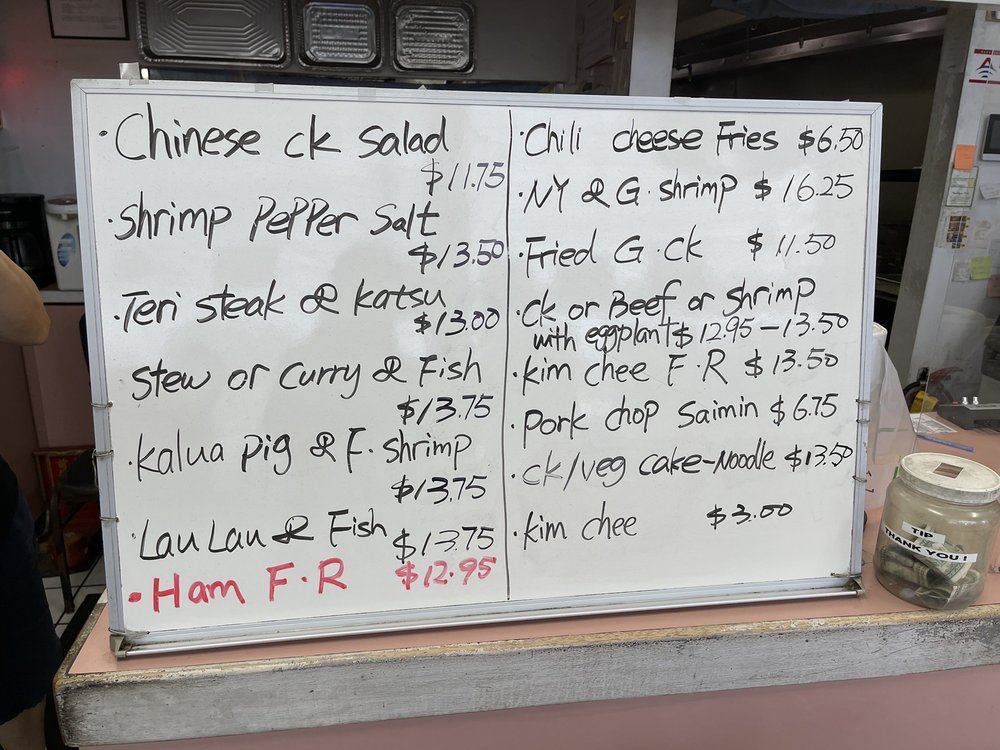 ·Chinese ck salad
$11.75
·Shrimp Pepper Salt
$13.50
·Teri steak & katsu
$13.00
Stew or curry & Fish
$13.75
·kalua pig & F. shrimp
$13.75
·Lau Lau & Fish $13.75
·Ham F.R $12.95
·Chili cheese Fries $6.50
·NY & G. shrimp $16.25
·Fried G.ck $11.50
·ck or Beef or shrimp
with eggplant $12.95-13.50
·kim chee F.R $13.50
·Pork chop Saimin $6.75
·ck/veg cake-Noodle $13.50
·kim chee $3.00
TIP
THANK YOU!